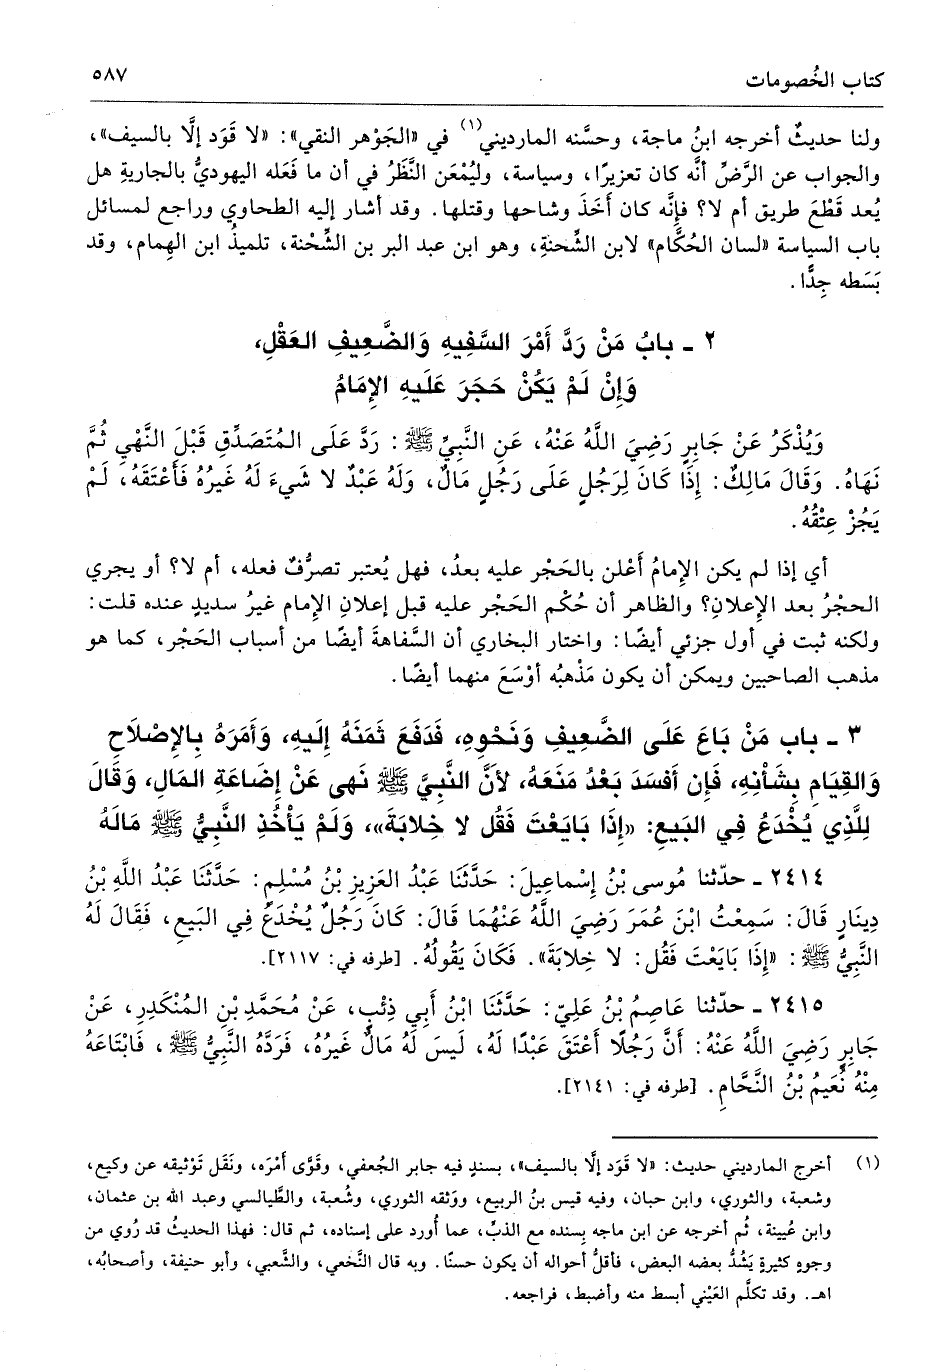 كتاب الخُصومات ٥٨٧
ولنا حديثٌ أخرجه ابنُ ماجة، وحسَّنه المارديني(١) في «الجَوْهر النقي»: «لا قَوَد إلَّا بالسيف»،
والجواب عن الرَّضِّ أنَّه كان تعزيرًا، وسياسة، وليُمْعَن النَّظَرُ في أن ما فَعَله اليهوديُّ بالجاريةِ هل
يُعد قَطْعَ طريق أم لا؟ فإنَّه كان أَخَذَ وشاحها وقتلها. وقد أشار إليه الطحاوي وراجع لمسائل
باب السياسة «لسان الحُكَّام» لابن الشِّحنةِ، وهو ابن عبد البر بن الشِّحْنة، تلميذُ ابن الهمام، وقد
بَسَطه جِدًّا.
٢ ـ بابُ مَنْ رَدَّ أَمْرَ السَّفِيهِ وَالضَّعِيفِ العَقْلِ،
وَإِنْ لَمْ يَكُنْ حَجَرَ عَلَيهِ الإِمَامُ
وَيُذْكَرُ عَنْ جَابِرٍ رَضِيَ اللَّهُ عَنْهُ، عَنِ النَّبِيِّ ﷺ: رَدَّ عَلَى المُتَصَدِّقِ قَبْلَ النَّهْيِ ثُمَّ
نَهَاهُ. وَقَالَ مَالِكٌ: إِذَا كَانَ لِرَجُلٍ عَلَى رَجُلٍ مَالٌ، وَلَهُ عَبْدٌ لا شَيءَ لَهُ غَيرُهُ فَأَعْتَقَهُ، لَمْ
يَجُزْ عِتْقُهُ.
أي إذا لم يكن الإِمامُ أَعْلن بالحَجْر عليه بعدُ، فهل يُعتبر تصرُّفُ فعله، أم لا؟ أو يجري
الحجْرُ بعد الإِعلانِ؟ والظاهر أن حُكْم الحَجْر عليه قبل إعلانِ الإِمام غيرُ سديدٍ عنده قلت:
ولكنه ثبت في أول جزئي أيضًا: واختار البخاري أن السَّفاهةَ أيضًا من أسباب الحَجْر، كما هو
مذهب الصاحبين ويمكن أن يكون مَذْهبُه أَوْسَعَ منهما أيضًا.
٣ ـ باب مَنْ بَاعَ عَلَى الضَّعِيفِ وَنَحْوِهِ، فَدَفَعَ ثَمَنَهُ إِلَيهِ، وَأَمَرَهُ بِالإِصْلَاحِ
وَالقِيَامِ بِشَأْنِهِ، فَإِن أَفسَدَ بَعْدُ مَنَعَهُ، لأَنَّ النَّبِيَّ ﷺ نَهى عَنْ إِضَاعَةِ المَالِ، وَقَالَ
لِلَّذِي يُخْدَعُ فِي البَيعِ: «إِذَا بَايَعْتَ فَقُل لا خِلابَةَ»، وَلَمْ يَأْخُذِ النَّبِيُّ ﷺ مَالَهُ
٢٤١٤ ـ حدّثنا مُوسى بْنُ إِسْماعِيلَ: حَدَّثَنَا عَبْدُ العَزِيزِ بْنُ مُسْلِمٍ: حَدَّثَنَا عَبْدُ اللَّهِ بْنُ
دِينَارٍ قَالَ: سَمِعْتُ ابْنَ عُمَرَ رَضِيَ اللَّهُ عَنْهُمَا قَالَ: كَانَ رَجُلٌ يُخْدَعُ فِي البَيعِ، فَقَالَ لَهُ
النَّبِيُّ ﷺ: «إِذَا بَايَعْتَ فَقُل: لا خِلابَةَ». فَكَانَ يَقُولُهُ. [طرفه في: ٢١١٧].
٢٤١٥ ـ حدّثنا عَاصِمُ بْنُ عَلِيّ: حَدَّثَنَا ابْنُ أَبِي ذِئْبٍ، عَنْ مُحَمَّدِ بْنِ المُنْكَدِرِ، عَنْ
جَابِرٍ رَضِيَ اللَّهُ عَنْهُ: أَنَّ رَجُلًا أَعْتَقَ عَبْدًا لَهُ، لَيسَ لَهُ مَالٌ غَيرُهُ، فَرَدَّهُ النَّبِيُّ ﷺ، فَابْتَاعَهُ
مِنْهُ نُعَيمُ بْنُ النَّحَّامِ. [طرفه في: ٢١٤١].
(١) أخرج المارديني حديث: «لا قَوَد إلَّا بالسيف»، بسندٍ فيه جابر الجُعفي، وقَوَّى أَمْرَه، ونَقَل تَوْثيقه عن وكيع،
وشعبة، والثوري، وابن حبان، وفيه قيس بنُ الربيع، ووَثقه الثوري، وشُعبة، والطَّيالسي وعبد الله بن عثمان،
وابن عُيينة، ثُم أخرجه عن ابن ماجه بِسنده مع الذبِّ، عما أُورد على إسناده، ثم قال: فهذا الحديثُ قد رُوي من
وجوهٍ كثيرةٍ يَشُدُّ بعضه البعض، فأقلُّ أحواله أن يكون حسنًا. وبه قال النَّخَعي، والشَّعبي، وأبو حنيفة، وأصحابُه،
اهـ. وقد تكلَّم العَيْني أبسط منه وأضبط، فراجعه.